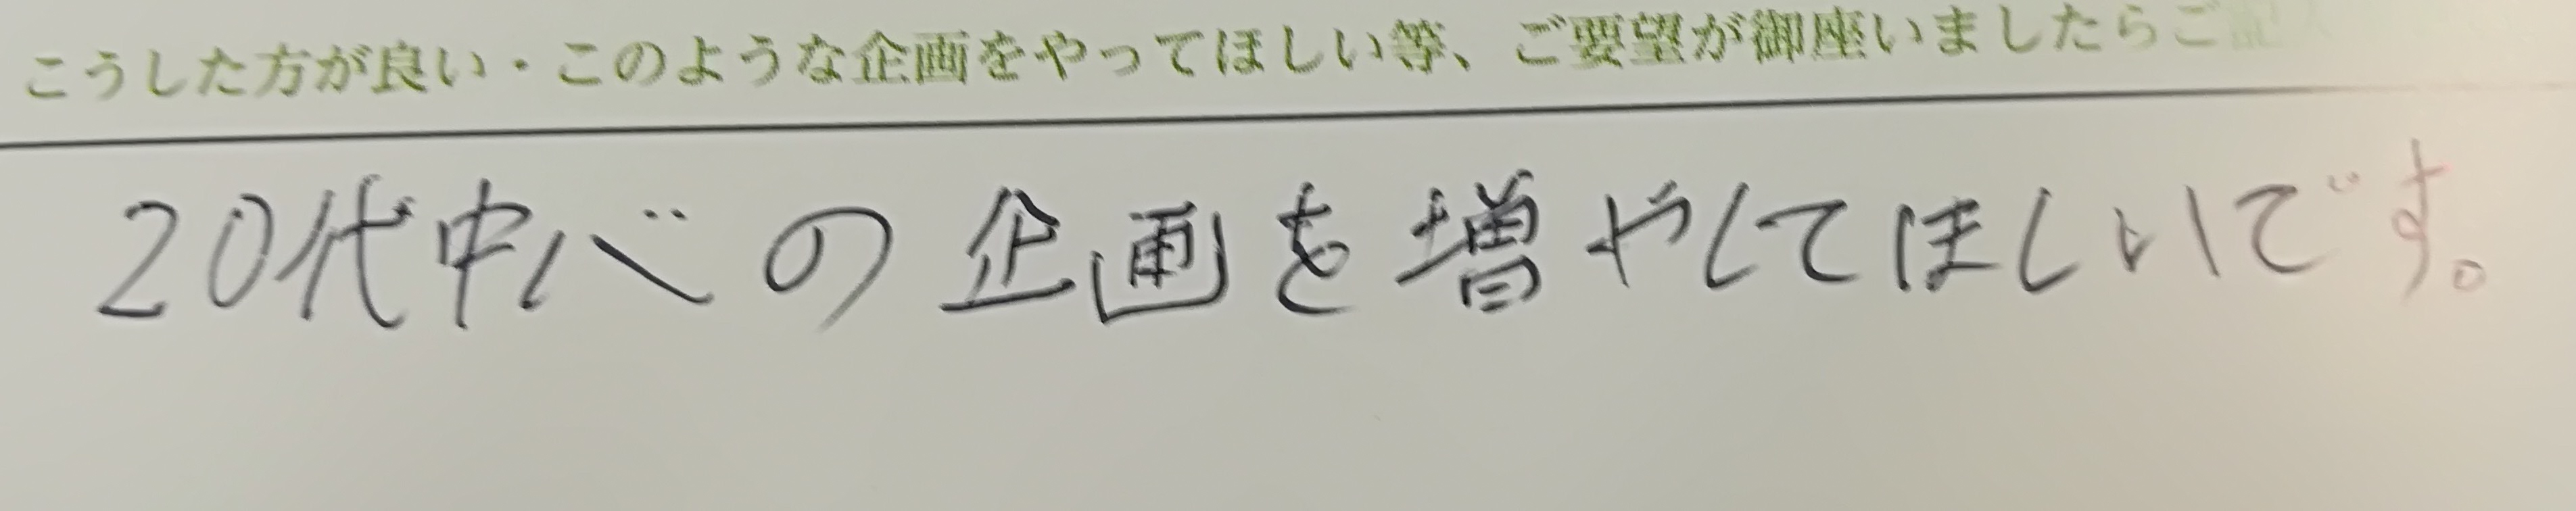 こうした方が良い・このような企画をやってほしい等、ご要望が御座いましたらご記
20代中心の企画を増やしてほしいです。